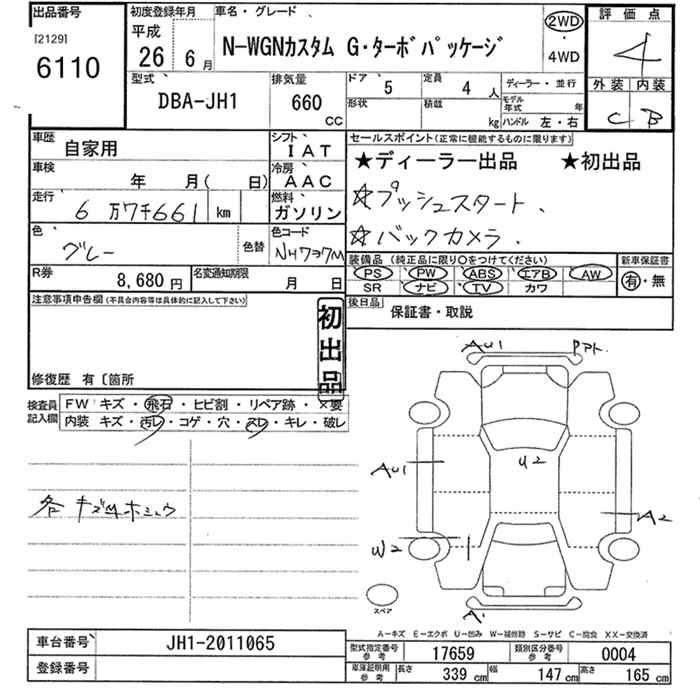 出品番号 初度登録年月 車名・グレード 評価点
[2129] 平成 2WD
6110 26 6月 N-WGNカスタム G・ターボパッケージ 4WD 4
型式 排気量 ドア 5 定員 4人 ディーラー・並行 外装 内装
DBA-JH1 660 cc 形状 積載 kg モデル年式 年 C B
ハンドル 左・右
車歴 自家用 シフト IAT セールスポイント(正常に機能するものに限ります)
車検 年 月( 日) 冷房 AAC ★ディーラー出品 ★初出品
走行 6万7千661 km 燃料 ガソリン ☆プッシュスタート、
色 グレー 色替 色コード NH737M ☆バックカメラ、
R券 8,680円 名変通知期限 月 日 装備品(純正品に限り○をつけてください) 新車保証書
PS PW ABS エアB AW 有・無
SR ナビ TV カワ
注意事項申告欄(不具合内容等は具体的に記入して下さい) 後日品 保証書・取説
初出品
修復歴 有〔箇所
検査員記入欄 FW キズ・飛石・ヒビ割・リペア跡・×要
内装 キズ・汚レ・コゲ・穴・スレ・キレ・破レ
AU1
AU1 U2
A2
各キズ
W2
スペア A
A-キズ E-エクボ U-凹み W-補修跡 S-サビ C-腐食 XX-交換済
車台番号 JH1-2011065 型式指定番号 参考 17659 類別区分番号 参考 0004
登録番号 車庫証明用 参考 長さ 339cm 幅 147cm 高さ 165cm